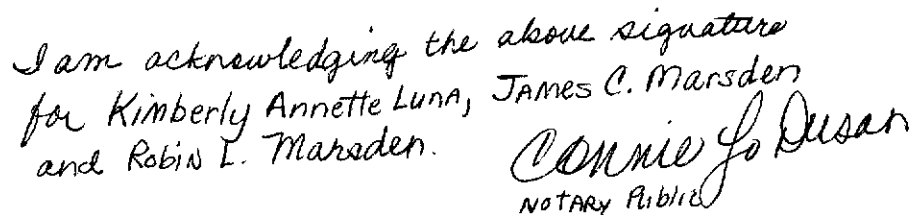 I am acknowledging the above signature
for Kimberly Annette Luna, James C. Marsden
and Robin L. Marsden.
Connie Jo Dusan
Notary Public